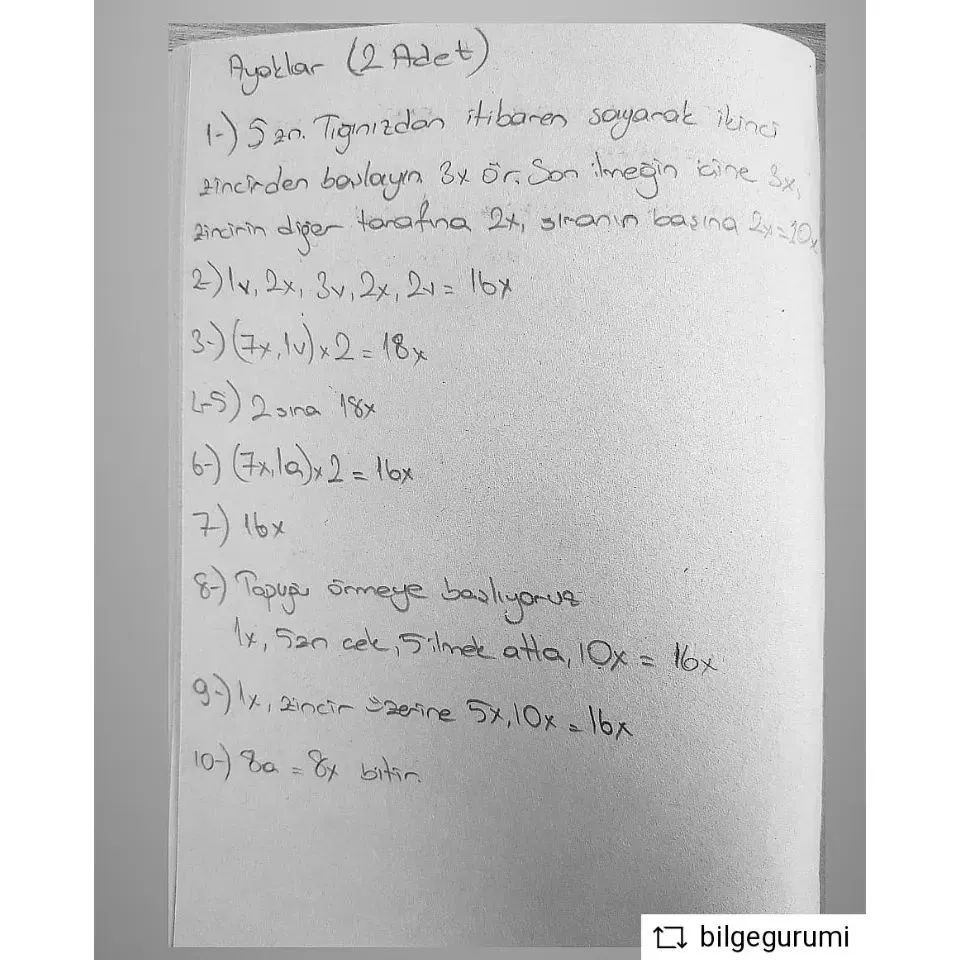 Ayaklar (2 Adet)
1-) 5 zn. Tığınızdan itibaren sayarak ikinci
zincirden başlayın 3x ör. Son ilmeğin içine 3x,
zincirin diğer tarafına 2x, sıranın başına 2x=10x
2-) 1v, 2x, 3v, 2x, 2v = 16x
3-) (7x, 1v) x 2 = 18x
4-5) 2 sıra 18x
6-) (7x, 1a) x 2 = 16x
7-) 16x
8-) Topuğu örmeye başlıyoruz
1x, 5zn çek, 5 ilmek atla, 10x = 16x
9-) 1x, zincir üzerine 5x, 10x = 16x
10-) 8a = 8x bitir.
bilgegurumi